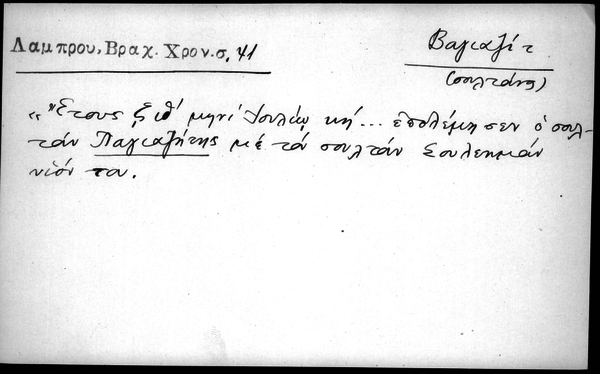 Λαμπρου, Βραχ. Χρον. σ. 41
Βαγιαζήτ
(σουλτάνος)
«"Ετους ζξθ' μηνί Ἰουλίῳ κή... ἐπολέμησεν ὁ σουλ-
τάν Παγιαζήτης μέ τόν σουλτάν Σουλεημάν
υἱόν του.